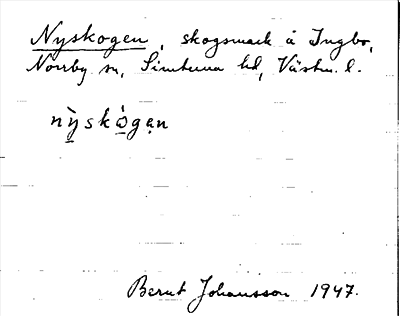 Nyskogen, skogsmark å Ingbo,
Norrby sn, Simtuna hd, Västm. l.
nỳskògẹn
Bernt Johansson 1947.